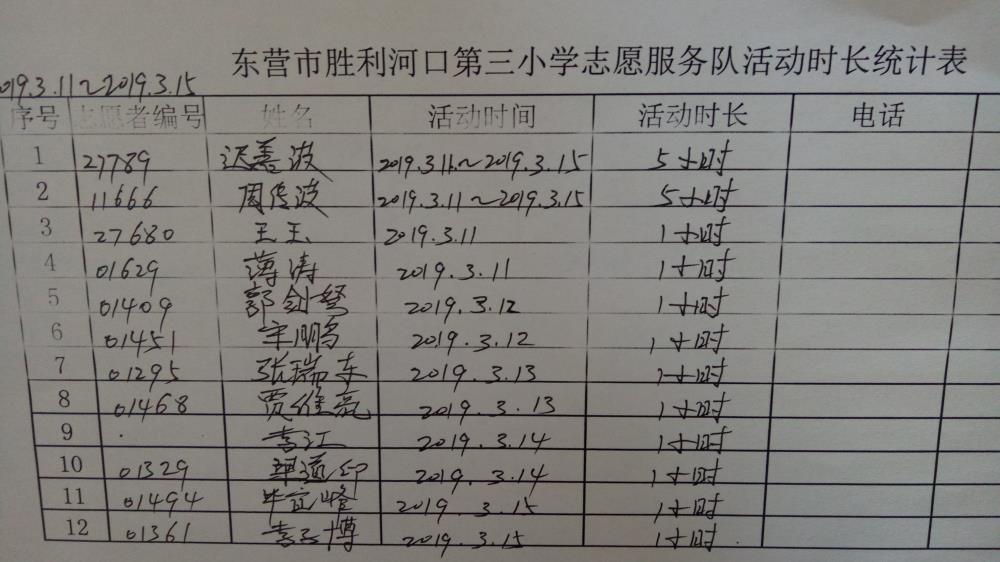 东营市胜利河口第三小学志愿服务队活动时长统计表
019.3.11～2019.3.15
序号 志愿者编号 姓名 活动时间 活动时长 电话
1 27789 迟善波 2019.3.11～2019.3.15 5小时
2 11666 周传波 2019.3.11～2019.3.15 5小时
3 27680 王玉 2019.3.11 1小时
4 01629 薄涛 2019.3.11 1小时
5 01409 郭剑 2019.3.12 1小时
6 01451 宋鹏 2019.3.12 1小时
7 01295 张瑞东 2019.3.13 1小时
8 01468 贾维亮 2019.3.13 1小时
9 李江 2019.3.14 1小时
10 01329 2019.3.14 1小时
11 01494 毕宜峰 2019.3.15 1小时
12 01361 李博 2019.3.15 1小时